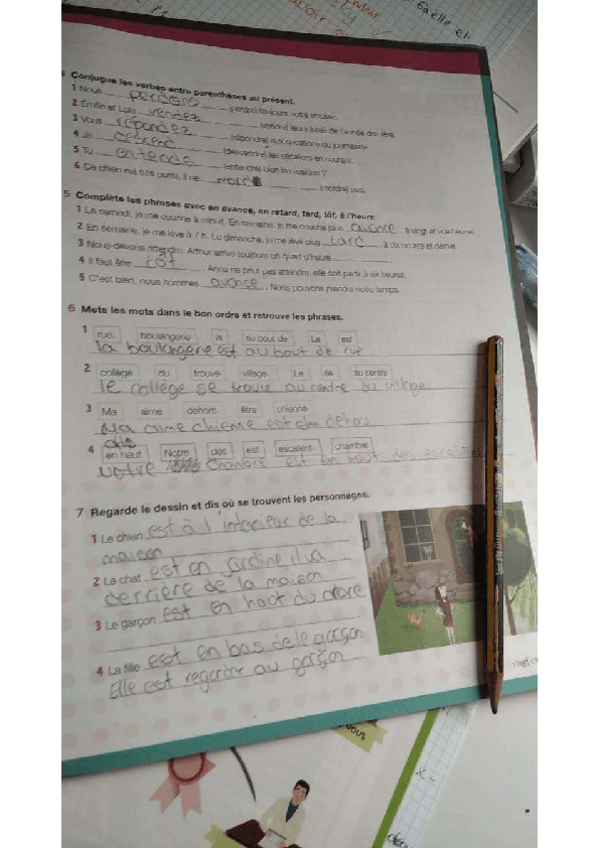 Gaëlle et
Conjugue les verbes entre parenthèses au présent.
1 Nous perdons (perdre) toujours notre
2 Émilien et Lola vendez (vendre) leurs livres de l'année dernière.
3 Vous répondez (répondre) aux questions du journaliste.
4 Je descend (descendre) les escaliers en courant.
5 Tu entends (entendre) bien la musique ?
6 Ce chien est très gentil, il ne mord (mordre) pas.
5 Complète les phrases avec en avance, en retard, tard, tôt, à l'heure.
1 Le samedi, je me couche à minuit. En semaine, je me couche plus avance, à vingt et une heures.
2 En semaine, je me lève à 7 h. Le dimanche, je me lève plus tard, à dix heures et demie.
3 Nous devons attendre. Arthur arrive toujours un quart d'heure
4 Il faut être tôt. Anne ne peut pas attendre, elle doit partir à six heures.
5 C'est bien, nous sommes avance. Nous pouvons prendre notre temps.
6 Mets les mots dans le bon ordre et retrouve les phrases.
1 rue. boulangerie la au bout de La est
la boulangerie est au bout de rue
2 collège du trouve village. Le se au centre
le collège se trouve au centre du village
3 Ma aime dehors. être chienne
Ma aime chienne est dehors
4 en haut Notre des est escaliers. chambre
Notre Chambre est en haut des escaliers
7 Regarde le dessin et dis où se trouvent les personnages.
1 Le chien est à l'intérieur de la
maison
2 Le chat est en jardine il va
derrière de la maison
3 Le garçon est en haut du
4 La fille est en bas de le garçon
Elle est regarder au garçon